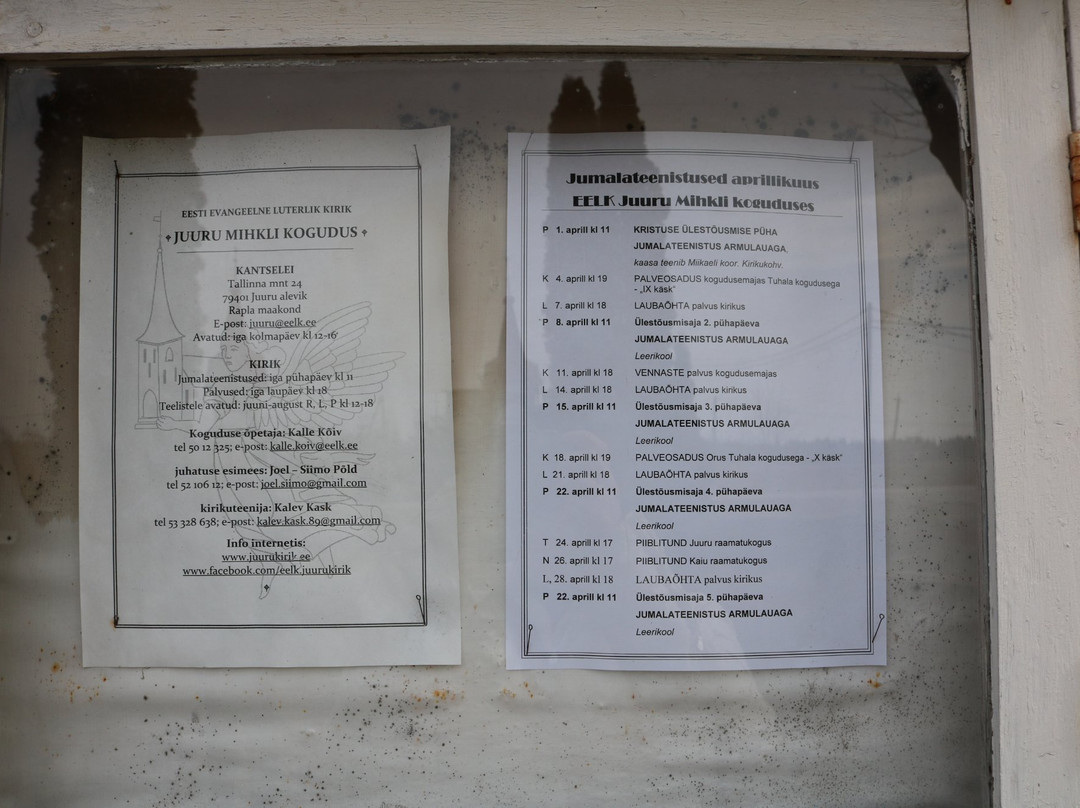 EESTI EVANGEELNE LUTERLIK KIRIK
JUURU MIHKLI KOGUDUS
KANTSELEI
Tallinna mnt 24
79401 Juuru alevik
Rapla maakond
E-post: juuru@eelk.ee
Avatud: iga kolmapäev kl 12-16
KIRIK
Jumalateenistused: iga pühapäev kl 11
Palvused: iga laupäev kl 18
Teelistele avatud: juuni-august R, L, P kl 12-18
Koguduse õpetaja: Kalle Kõiv
tel 50 12 325; e-post: kalle.koiv@eelk.ee
juhatuse esimees: Joel – Siimo Põld
tel 52 106 12; e-post: joel.siimo@gmail.com
kirikuteenija: Kalev Kask
tel 53 328 638; e-post: kalev.kask.89@gmail.com
Info internetis:
www.juurukirik.ee
www.facebook.com/eelk.juurukirik
Jumalateenistused aprillikuus
EELK Juuru Mihkli koguduses
P 1. aprill kl 11 KRISTUSE ÜLESTÕUSMISE PÜHA
JUMALATEENISTUS ARMULAUAGA,
kaasa teenib Miikaeli koor. Kirikukohv.
K 4. aprill kl 19 PALVEOSADUS kogudusemajas Tuhala kogudusega
- „IX käsk"
L 7. aprill kl 18 LAUBAÕHTA palvus kirikus
P 8. aprill kl 11 Ülestõusmisaja 2. pühapäeva
JUMALATEENISTUS ARMULAUAGA
Leerikool
K 11. aprill kl 18 VENNASTE palvus kogudusemajas
L 14. aprill kl 18 LAUBAÕHTA palvus kirikus
P 15. aprill kl 11 Ülestõusmisaja 3. pühapäeva
JUMALATEENISTUS ARMULAUAGA
Leerikool
K 18. aprill kl 19 PALVEOSADUS Orus Tuhala kogudusega - „X käsk"
L 21. aprill kl 18 LAUBAÕHTA palvus kirikus
P 22. aprill kl 11 Ülestõusmisaja 4. pühapäeva
JUMALATEENISTUS ARMULAUAGA
Leerikool
T 24. aprill kl 17 PIIBLITUND Juuru raamatukogus
N 26. aprill kl 17 PIIBLITUND Kaiu raamatukogus
L, 28. aprill kl 18 LAUBAÕHTA palvus kirikus
P 22. aprill kl 11 Ülestõusmisaja 5. pühapäeva
JUMALATEENISTUS ARMULAUAGA
Leerikool